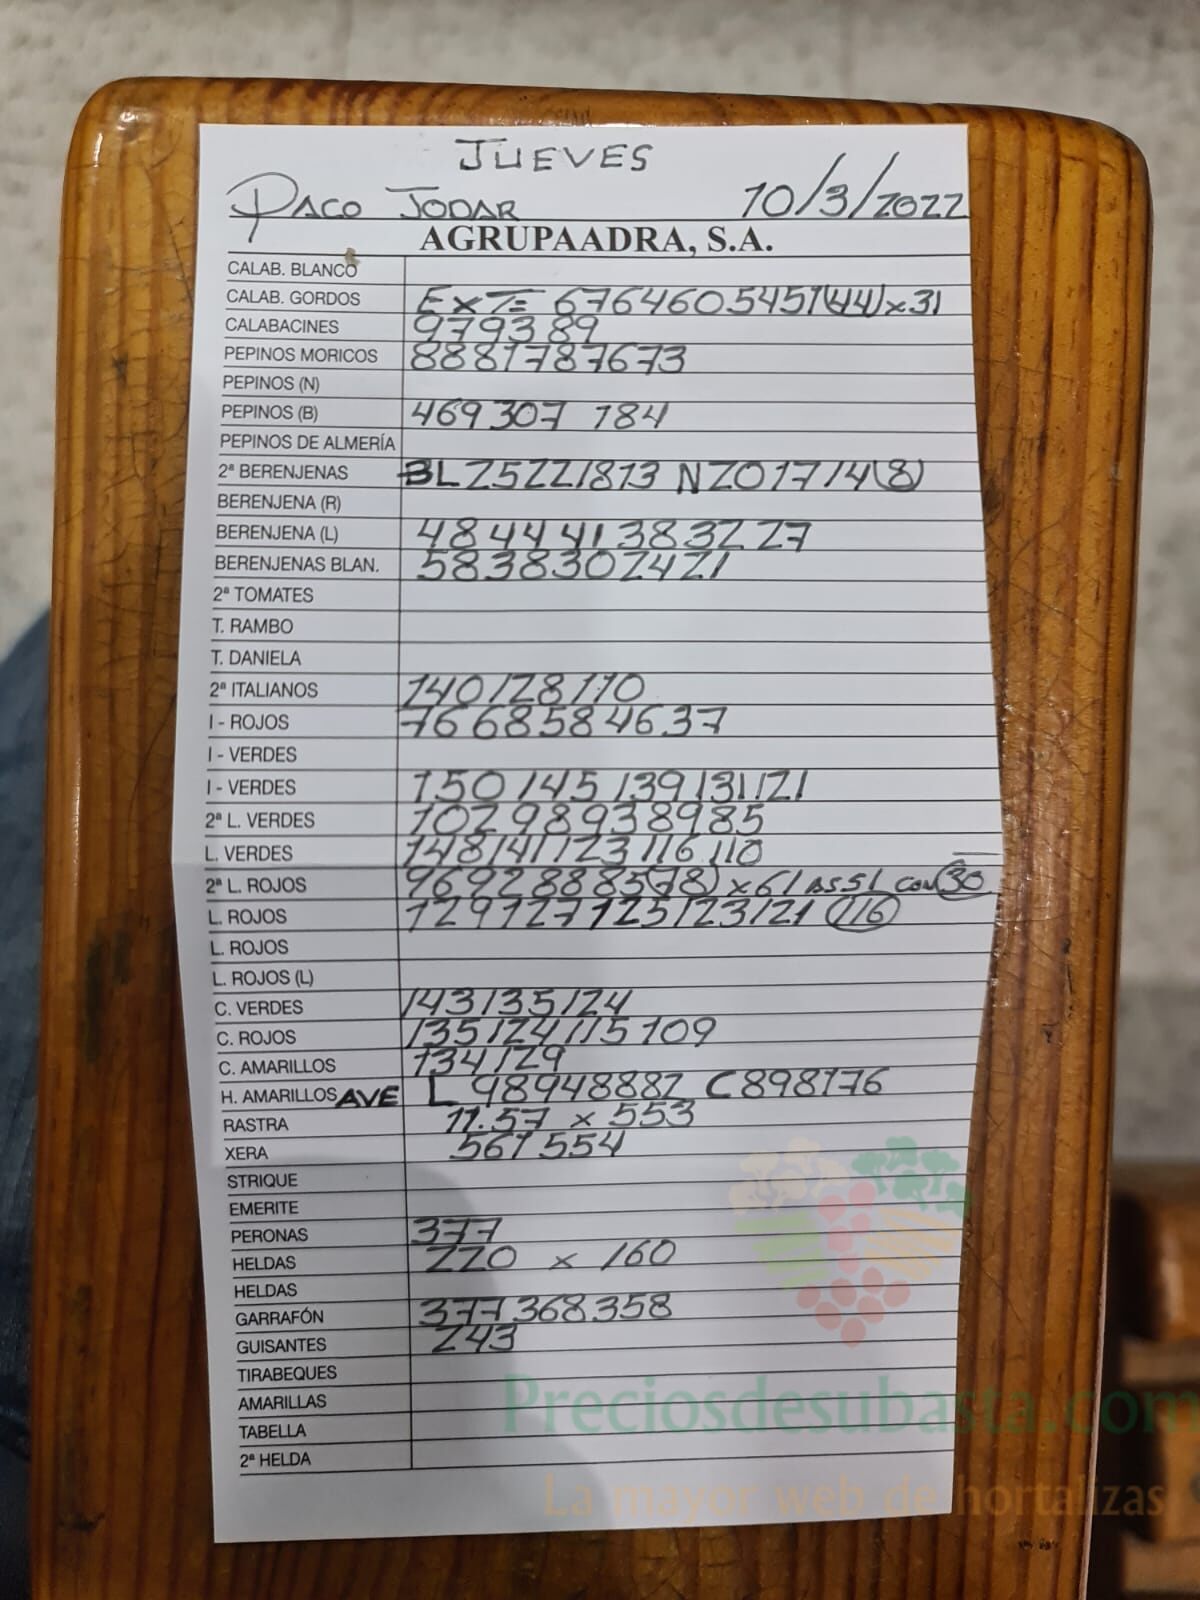 JUEVES
PACO JODAR 10/3/2022
AGRUPAADRA, S.A.
CALAB. BLANCO
CALAB. GORDOS EXT= 6764605457(44)x31
CALABACINES 979389
PEPINOS MORICOS 8881787673
PEPINOS (N)
PEPINOS (B) 469307 184
PEPINOS DE ALMERÍA
2ª BERENJENAS BL 2522/813 N2017/4(8)
BERENJENA (R)
BERENJENA (L) 484441383227
BERENJENAS BLAN. 5838302421
2ª TOMATES
T. RAMBO
T. DANIELA
2ª ITALIANOS 140/128/110
I - ROJOS 7668584637
I - VERDES
I - VERDES 150/145/139/131/121
2ª L. VERDES 10298938985
L. VERDES 148/141/123/116/110
2ª L. ROJOS 9692888578) x 61 AS51 CON 30
L. ROJOS 129127125/123/121 (116)
L. ROJOS
L. ROJOS (L)
C. VERDES 143/135/124
C. ROJOS 135/124/115 109
C. AMARILLOS 134/129
H. AMARILLOS AVE L 98948882 C898176
RASTRA 11.57 x 553
XERA 561 554
STRIQUE
EMERITE
PERONAS 377
HELDAS 220 x 160
HELDAS
GARRAFÓN 377368358
GUISANTES 243
TIRABEQUES
AMARILLAS
TABELLA
2ª HELDA
Preciosdesubasta.com
La mayor web de hortalizas